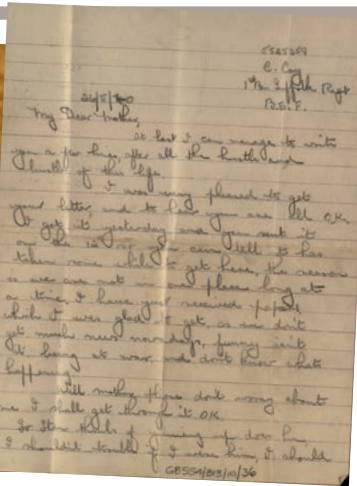 My Dear Mother,
At last I can manage to write
you a few lines, after all the hustle and
bustle of this life.
I was very pleased to get
your letter, and to hear your are all OK.
I got it yesterday and you sent it
on the 12 so you can tell it has
taken some while to get here, the reason
is we are not in one place long at
a time, I have just received papers
which I was glad to get, as we don't
get much news nowadays, funny isn't
it being at war and don't know whats
happening.
Well mother please don't worry about
me I shall get through it OK
So Stan thinks of joining up does he,
I shouldn't trouble if I were him, I should
GB554/B13/10/36